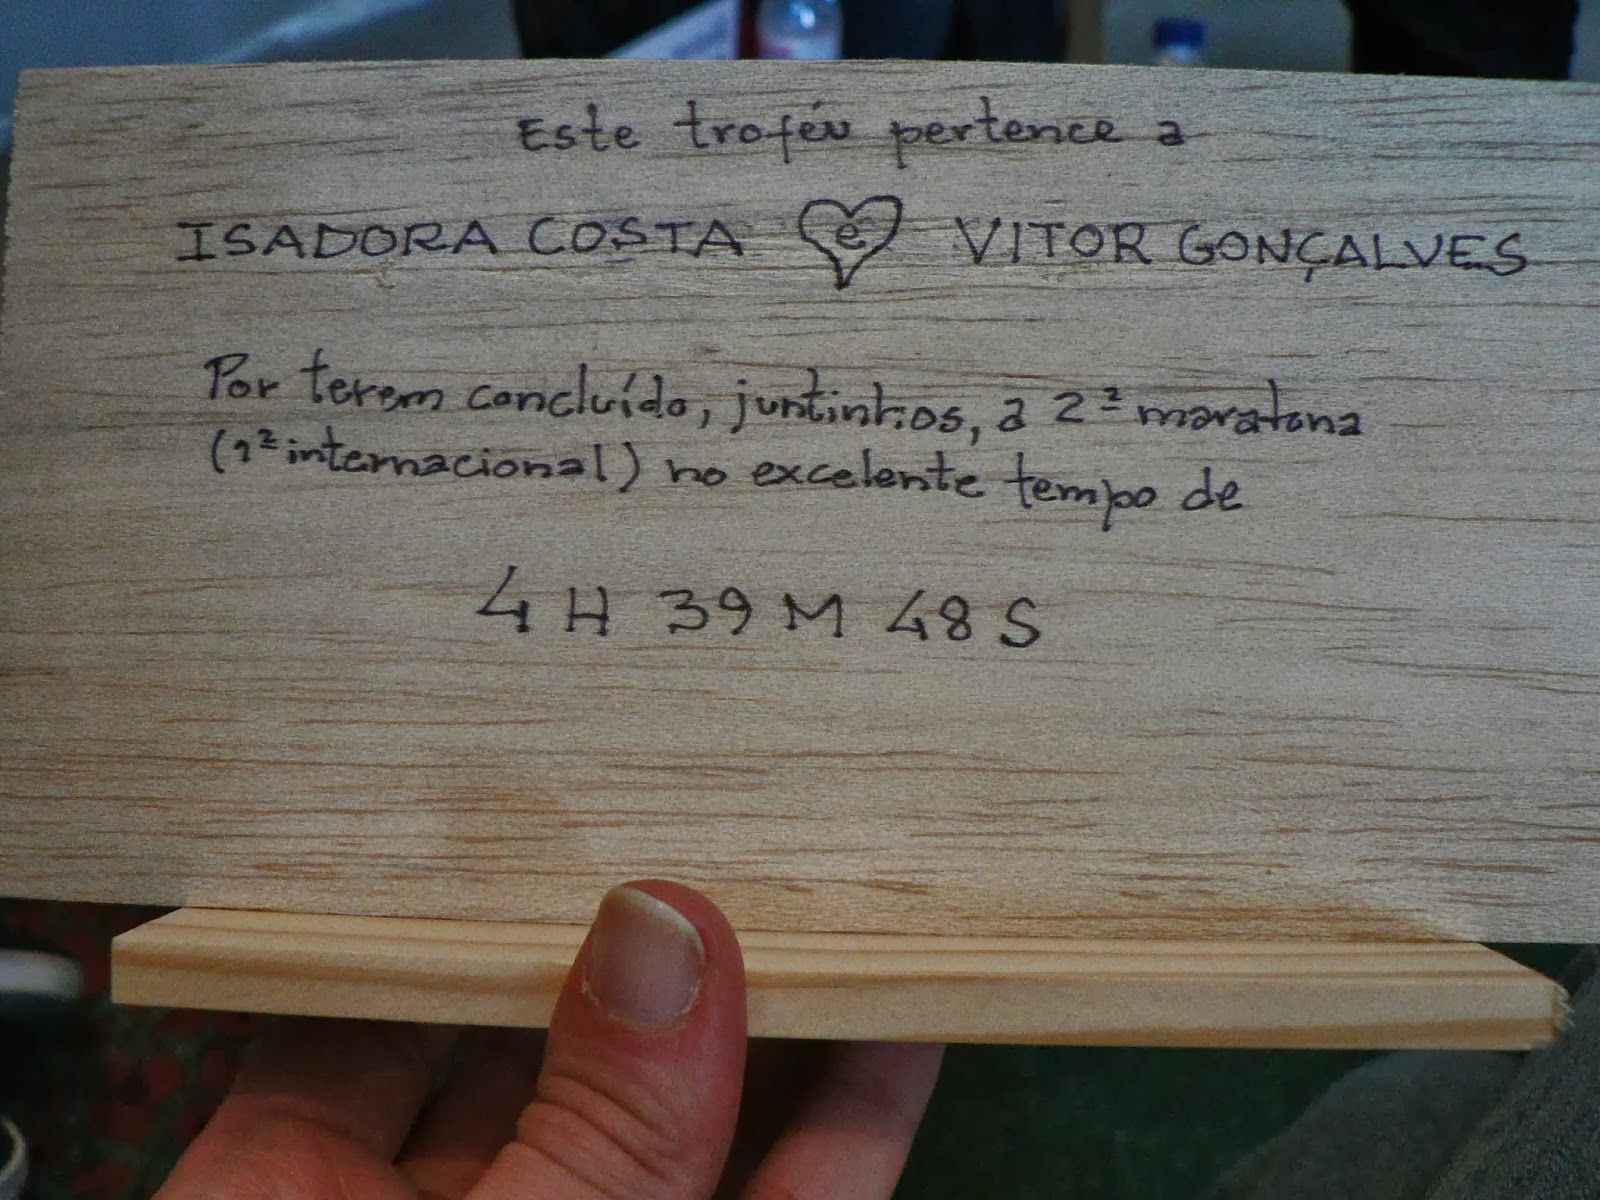 Este troféu pertence a
ISADORA COSTA e VITOR GONÇALVES
Por terem concluído, juntinhos, a 2ª maratona
(1ª internacional) no excelente tempo de
4 H 39 M 48 S